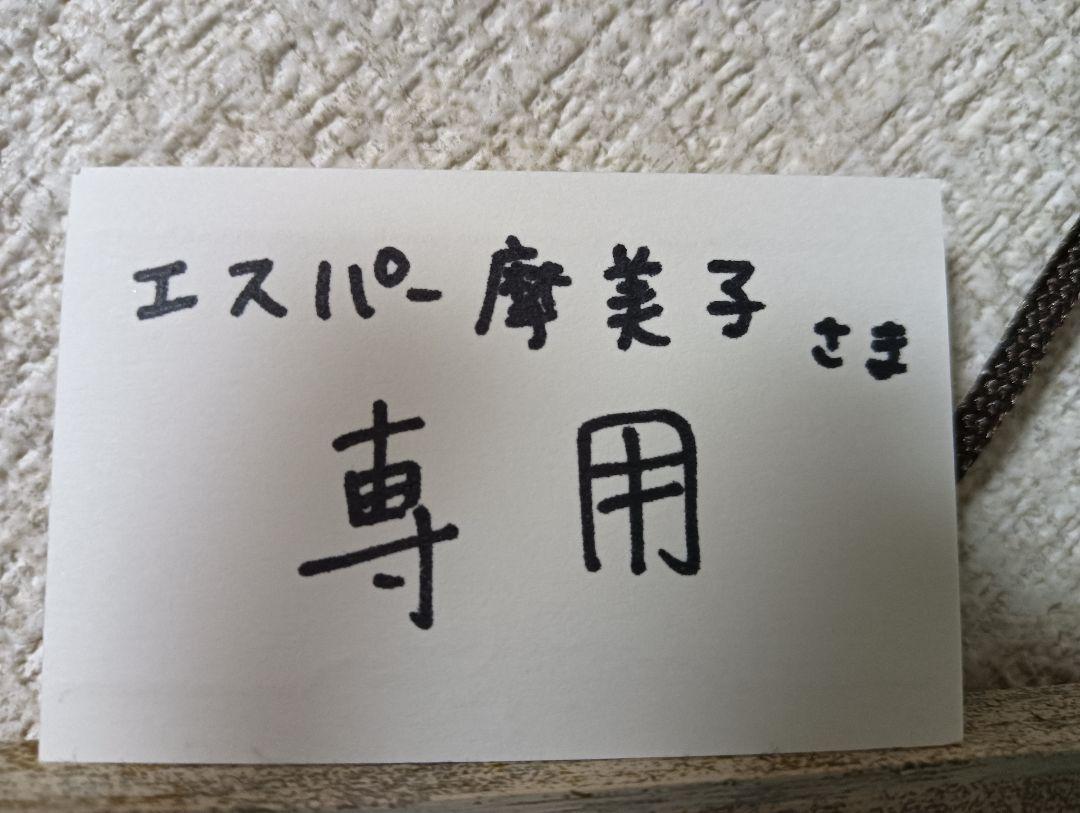 エスパー摩美子さま
専用